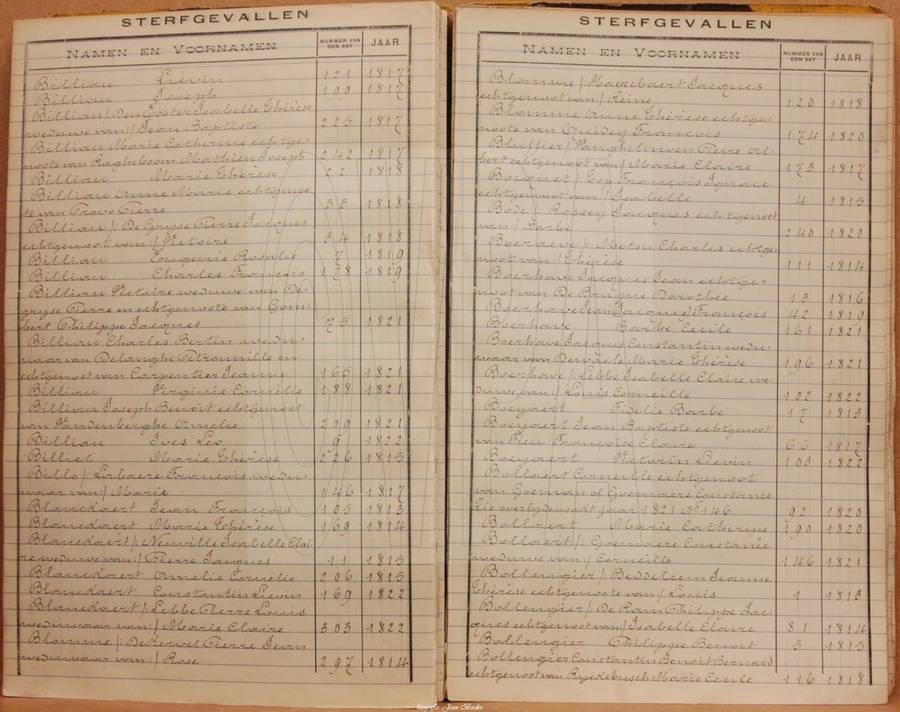 STERFGEVALLEN
NAMEN EN VOORNAMEN NUMMER VAN DEN AKT JAAR
Billiau Liévin 121 1817
Billiau Joseph 199 1817
Billiau / Den Coster Isabelle Thérèse
weduwe van / Jean Baptiste 223 1817
Billiau Marie Catherine echtge-
noote van Mathieu Joseph 242 1817
Billiau Marie Thérèse 22 1818
Billiau Anne Marie echtgenoo-
te van Pierre 33 1818
Billiau / De Gryse Pierre Jacques
echtgenoot van / Victoire 34 1818
Billiau Eugenie Rosalie 7 1819
Billiau Charles François 178 1819
Billiau Victoire weduwe van De-
gryse Pierre en echtgenoote van Gom-
bert Philippe Jacques 75 1821
Billiau Charles Bertin wedu-
waar van Delanghe Petronille en
echtgenoot van Carpentier Jeanne 165 1821
Billiau Virginie Cornélie 188 1821
Billiau Joseph Benoit echtgenoot
van Vandenberghe Amelie 209 1821
Billiau Ives Léo 9 1822
Billiet Marie Thérèse 226 1813
Billo / François wedu-
waar van / Marie 146 1817
Blanckaert Jean François 105 1813
Blanckaert Marie Thérèse 169 1814
Blanckaert / Neuville Isabelle Clai-
re weduwe van / Pierre Jacques 11 1815
Blanckaert Amelie Cornélie 206 1815
Blanckaert Constantin Liévin 169 1822
Blanckaert / Libbe Pierre Louis
weduwaar van / Marie Claire 303 1822
Blomme / Dekervel Pierre Jean
weduwaar van / Rose 297 1814
STERFGEVALLEN
NAMEN EN VOORNAMEN NUMMER VAN DEN AKT JAAR
Blomme / Jacques
echtgenoot van / Reine 120 1818
Blomme Anne Thérèse echtge-
noote van François 174 1820
/ Vangheluwen Pierre Al-
bert echtgenoot van / Marie Claire 173 1817
Bocquet / François Ignace
echtgenoot van / Isabelle 4 1813
Bode / Rossey Jacques echtgenoot
van / Barbe 240 1820
/ Metsu Charles echtge-
noot van / Thérèse 111 1814
Boerhave Jacques Jean echtge-
noot van De Bruyne Dorothée 13 1816
Boerhave Jean (Jacques) François 42 1819
Boerhave Barbe Cecile 161 1821
Boerhave Jacques Constantin wedu-
waar van Marie Thérèse 196 1821
Boerhave / Libbe Isabelle Claire we-
duwe van / Louis Corneille 102 1822
Boeyaert Fidélie Barbe 17 1813
Boeyaert Jean Baptiste echtgenoot
van Françoise Claire 66 1817
Boeyaert Victorin Liévin 103 1822
Bollaert Corneille echtgenoot
van Goeman of Goemaere Constance
Zie overlijdensakt jaar 1821 N° 146 92 1820
Bollaert Marie Catherine 190 1820
Bollaert / Goemaere Constance
weduwe van / Corneille 146 1821
Bollengier / Beddeleem Jeanne
Thérèse echtgenoote van / Louis 1 1813
Bollengier / De Ram Philippe Jac-
ques echtgenoot van / Isabelle Claire 81 1814
Bollengier Philippe Benoit 3 1815
Bollengier Constantin Benoit Bernard
echtgenoot van Ryckebusch Marie Cecile 116 1818